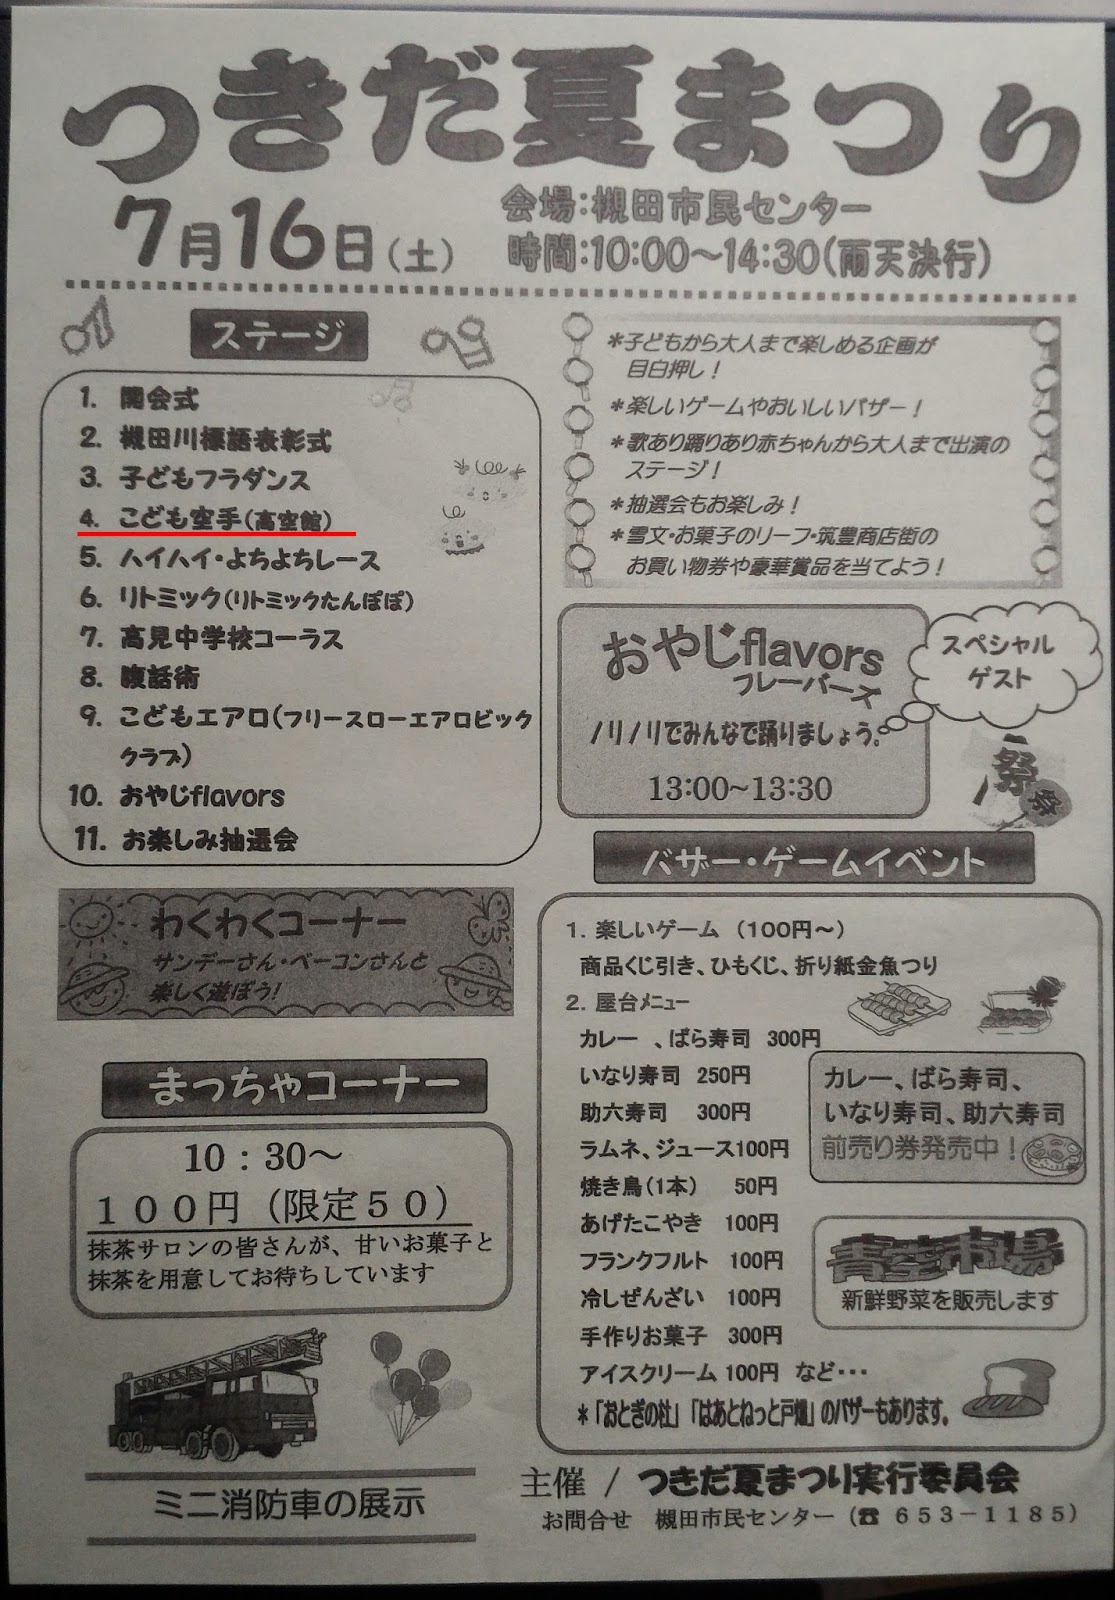 つきだ夏まつり
7月16日(土)
会場:槻田市民センター
時間:10:00～14:30(雨天決行)
ステージ
1. 開会式
2. 槻田川標語表彰式
3. 子どもフラダンス
4. こども空手(高空館)
5. ハイハイ・よちよちレース
6. リトミック(リトミックたんぽぽ)
7. 高見中学校コーラス
8. 腹話術
9. こどもエアロ(フリースローエアロビック
クラブ)
10. おやじflavors
11. お楽しみ抽選会
*子どもから大人まで楽しめる企画が
目白押し!
*楽しいゲームやおいしいバザー!
*歌あり踊りあり赤ちゃんから大人まで出演の
ステージ!
*抽選会もお楽しみ!
*雪文・お菓子のリーフ・筑豊商店街の
お買い物券や豪華賞品を当てよう!
おやじflavors
フレーバーズ
ノリノリでみんなで踊りましょう。
13:00~13:30
スペシャル
ゲスト
祭
祭
わくわくコーナー
サンデーさん・ベーコンさんと
楽しく遊ぼう!
まっちゃコーナー
10:30～
100円(限定50)
抹茶サロンの皆さんが、甘いお菓子と
抹茶を用意してお待ちしています
ミニ消防車の展示
バザー・ゲームイベント
1. 楽しいゲーム (100円～)
商品くじ引き、ひもくじ、折り紙金魚つり
2. 屋台メニュー
カレー 、ばら寿司 300円
いなり寿司 250円
助六寿司 300円
ラムネ、ジュース100円
焼き鳥(1本) 50円
あげたこやき 100円
フランクフルト 100円
冷しぜんざい 100円
手作りお菓子 300円
アイスクリーム 100円 など・・・
*「おとぎの杜」「はあとねっと戸畑」のバザーもあります。
カレー、ばら寿司、
いなり寿司、助六寿司
前売り券発売中!
青空市場
新鮮野菜を販売します
主催 / つきだ夏まつり実行委員会
お問合せ 槻田市民センター (☎ 653-1185)